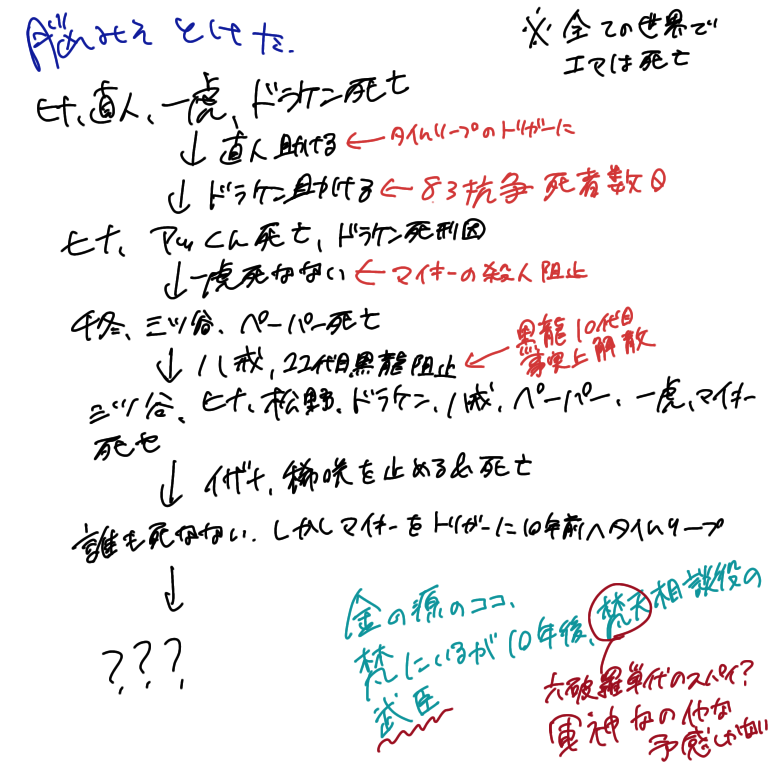 脳みそ とけた.
※全ての世界で
エマは死亡
ヒナ、直人、一虎、ドラケン死亡
↓ 直人助ける ← タイムリープのトリガーに
↓ ドラケン助ける ← 8.3抗争 死者数0
ヒナ、アッくん死亡、ドラケン死刑囚
↓ 一虎死なない ← マイキーの殺人阻止
千冬、三ツ谷、ペーパー死亡
↓ 八戒、22代目黒龍阻止 ← 黒龍10代目
事実上解散
三ツ谷、ヒナ、松野、ドラケン、八戒、ペーパー、一虎、マイキー
死亡
↓ イザナ、稀咲を止める&死亡
誰も死なない.しかしマイキーをトリガーに10年前へタイムリープ
↓
???
金の源のココ、
梵にいるが10年後、梵天相談役の
武臣
六破羅単代のスパイ?
軍神なの他な
予感しかない